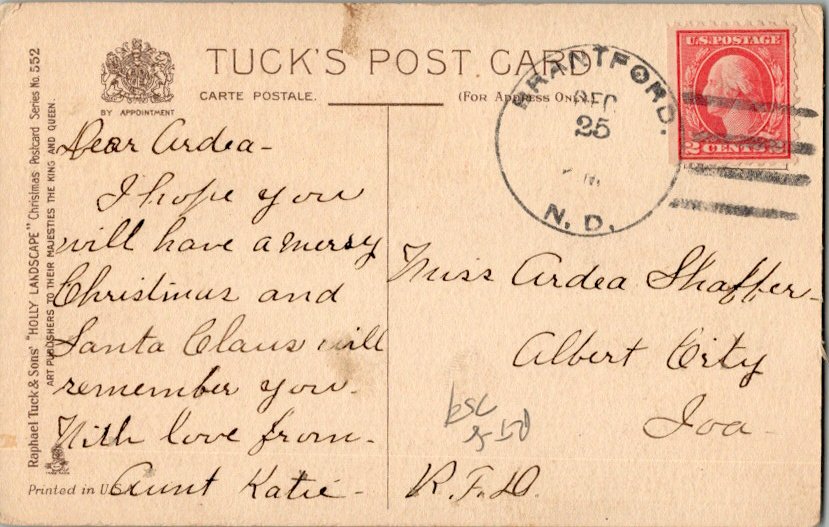 TUCK'S POST CARD
CARTE POSTALE.
(FOR ADDRESS ONLY)
BY APPOINTMENT
BRANTFORD.
DEC
25
N. D.
U.S. POSTAGE
2 CENTS 2
Raphael Tuck & Sons' "HOLLY LANDSCAPE" Christmas Postcard Series No. 552
ART PUBLISHERS TO THEIR MAJESTIES THE KING AND QUEEN.
Dear Ardea-
I hope you
will have a merry
Christmas and
Santa Claus will
remember you.
With love from-
Aunt Katie-
Printed in U.S.
Miss Ardea Shaffer-
Albert City
Ioa-
R.F.D.